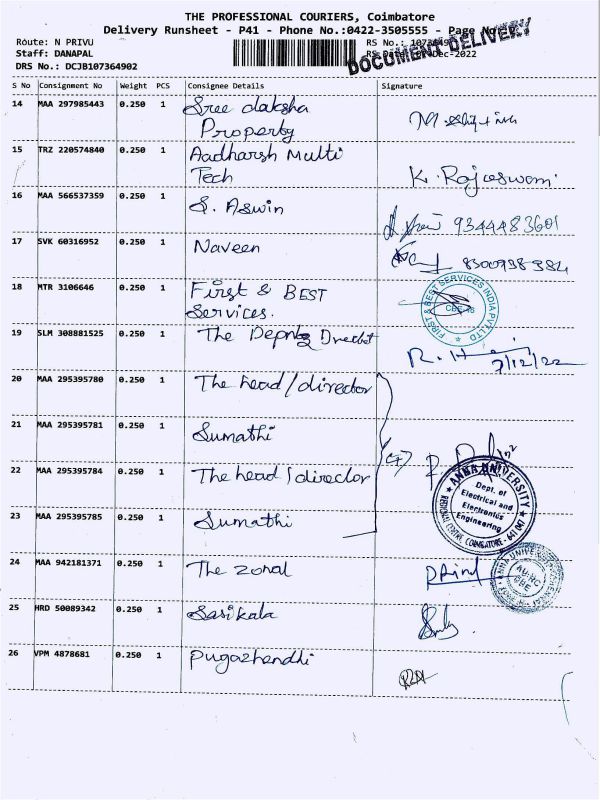 THE PROFESSIONAL COURIERS, Coimbatore
Delivery Runsheet - P41 - Phone No.:0422-3505555 - Page No:
DOCUMENT DELIVERY
Route: N PRIVU
RS No.:
Staff: DANAPAL
RS Date: Dec-2022
DRS No.: DCJB107364902
S No Consignment No Weight PCS Consignee Details Signature
14 MAA 297985443 0.250 1 Sree daksha
Property
15 TRZ 220574840 0.250 1 Aadharsh Multi
Tech K. Rajeswari
16 MAA 566537359 0.250 1 S. Aswin
9344483601
17 SVK 60316952 0.250 1 Naveen
8300738384
18 MTR 3106646 0.250 1 First & BEST
Services.
FIRST & BEST SERVICES INDIA PVT LTD
CBE-18
19 SLM 308881525 0.250 1 The Deputy Director
7/12/22
20 MAA 295395780 0.250 1 The head/director
21 MAA 295395781 0.250 1 Sumathi
22 MAA 295395784 0.250 1 The head/director
(4)
ANNA UNIVERSITY
Dept. of
Electrical and
Electronics
Engineering
REGIONAL CENTRE COIMBATORE - 641 047
23 MAA 295395785 0.250 1 Sumathi
24 MAA 942181371 0.250 1 The Zonal
ANNA UNIVERSITY
AU-RC
CBE
25 HRD 50089342 0.250 1 Sasikala
26 VPM 4878681 0.250 1 Pugazhendhi